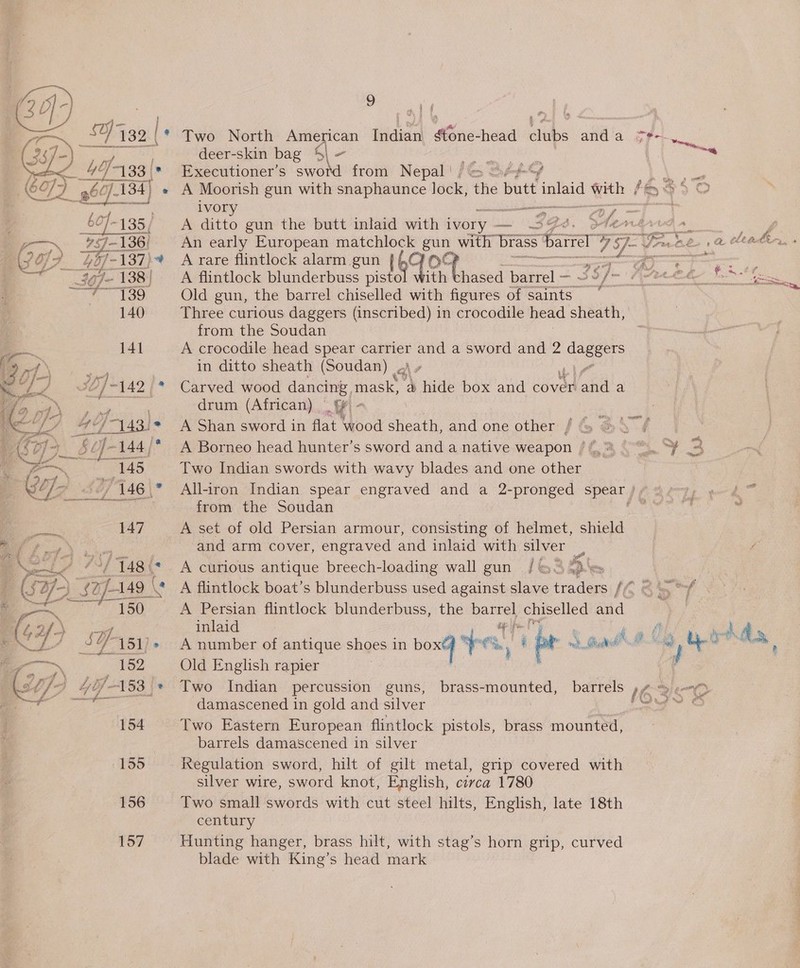 9
(30/-) 50/- 132 Two North American Indian stone-head clubs and a
deer-skin bag
(35/-) 40/- 133 Executioner's sword from Nepal
(60/-) 134 A Moorish gun with snaphaunce lock, the butt inlaid with
ivory
60/- 135 A ditto gun the butt inlaid with ivory —
75/- 136 An early European matchlock gun with brass barrel 75/-
137 A rare flintlock alarm gun
138 A flintlock blunderbuss pistol with chased barrel —
139 Old gun, the barrel chiselled with figures of saints
140 Three curious daggers (inscribed) in crocodile head sheath,
from the Soudan
141 A crocodile head spear carrier and a sword and 2 daggers
in ditto sheath (Soudan)
142 Carved wood dancing mask, a hide box and cover and a
drum (African)
143 A Shan sword in flat wood sheath, and one other
144 A Borneo head hunter's sword and a native weapon
145 Two Indian swords with wavy blades and one other
146 All-iron Indian spear engraved and a 2-pronged spear
from the Soudan
147 A set of old Persian armour, consisting of helmet, shield
and arm cover, engraved and inlaid with silver
148 A curious antique breech-loading wall gun
149 A flintlock boat's blunderbuss used against slave traders
150 A Persian flintlock blunderbuss, the barrel chiselled and
inlaid
151 A number of antique shoes in box
152 Old English rapier
153 Two Indian percussion guns, brass-mounted, barrels
damascened in gold and silver
154 Two Eastern European flintlock pistols, brass mounted,
barrels damascened in silver
155 Regulation sword, hilt of gilt metal, grip covered with
silver wire, sword knot, English, circa 1780
156 Two small swords with cut steel hilts, English, late 18th
century
157 Hunting hanger, brass hilt, with stag's horn grip, curved
blade with King's head mark